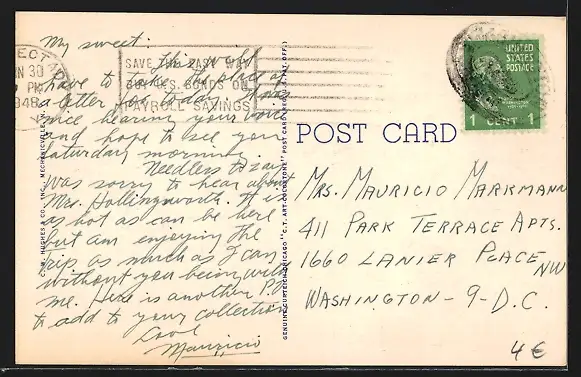 My sweet:
This will
have to take the place of
a letter for today. It was
nice hearing your voice
and hope to see you
Saturday morning.
Needless to say
was sorry to hear about
Mrs. Hollingsworth. It is
as hot as can be here
but am enjoying the
trip as much as I can
without you being with
me. Here is another P.C.
to add to your collection
Love
Mauricio
JUN 30
PM
1948
SAVE THE EASY WAY
BUY U.S. BONDS ON
PAYROLL SAVINGS
C. W. HUGHES & CO., INC., MECHANICVILLE
GENUINE CURTEICH-CHICAGO "C.T. ART-COLORTONE" POST CARD (REG. U.S. PAT. OFF.)
POST CARD
UNITED
STATES
POSTAGE
WASHINGTON
1 CENT 1
MRS. MAURICIO MARKMANN
411 PARK TERRACE APTS.
1660 LANIER PLACE NW
WASHINGTON-9-D.C.
4€